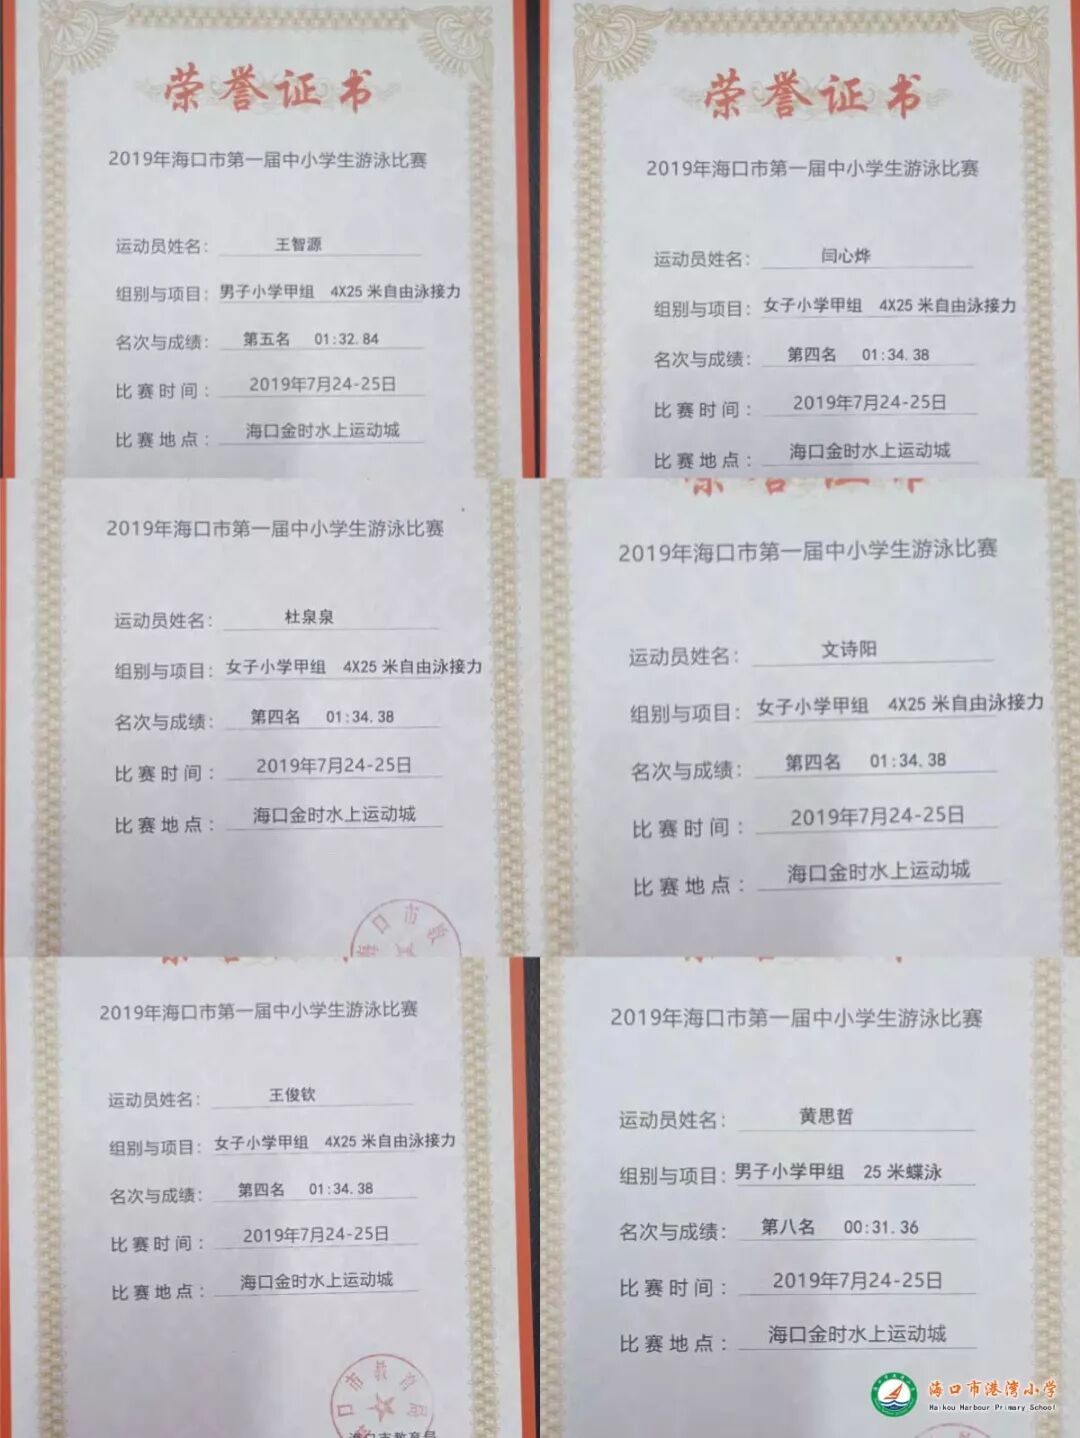 荣誉证书
2019年海口市第一届中小学生游泳比赛
运动员姓名： 王智源
组别与项目：男子小学甲组 4X25 米自由泳接力
名次与成绩： 第五名 01:32.84
比赛时间： 2019年7月24-25日
比赛地点： 海口金时水上运动城
荣誉证书
2019年海口市第一届中小学生游泳比赛
运动员姓名： 闫心烨
组别与项目：女子小学甲组 4X25 米自由泳接力
名次与成绩： 第四名 01:34.38
比赛时间： 2019年7月24-25日
比赛地点： 海口金时水上运动城
2019年海口市第一届中小学生游泳比赛
运动员姓名： 杜泉泉
组别与项目：女子小学甲组 4X25 米自由泳接力
名次与成绩： 第四名 01:34.38
比赛时间： 2019年7月24-25日
比赛地点： 海口金时水上运动城
海口市教
2019年海口市第一届中小学生游泳比赛
运动员姓名： 文诗阳
组别与项目：女子小学甲组 4X25 米自由泳接力
名次与成绩： 第四名 01:34.38
比赛时间： 2019年7月24-25日
比赛地点： 海口金时水上运动城
2019年海口市第一届中小学生游泳比赛
运动员姓名： 王俊钦
组别与项目：女子小学甲组 4X25 米自由泳接力
名次与成绩： 第四名 01:34.38
比赛时间： 2019年7月24-25日
比赛地点： 海口金时水上运动城
口市教育局
海口市教育局
2019年海口市第一届中小学生游泳比赛
运动员姓名： 黄思哲
组别与项目：男子小学甲组 25 米蝶泳
名次与成绩： 第八名 00:31.36
比赛时间： 2019年7月24-25日
比赛地点： 海口金时水上运动城
海口市港湾小学
Haikou Harbour Primary School